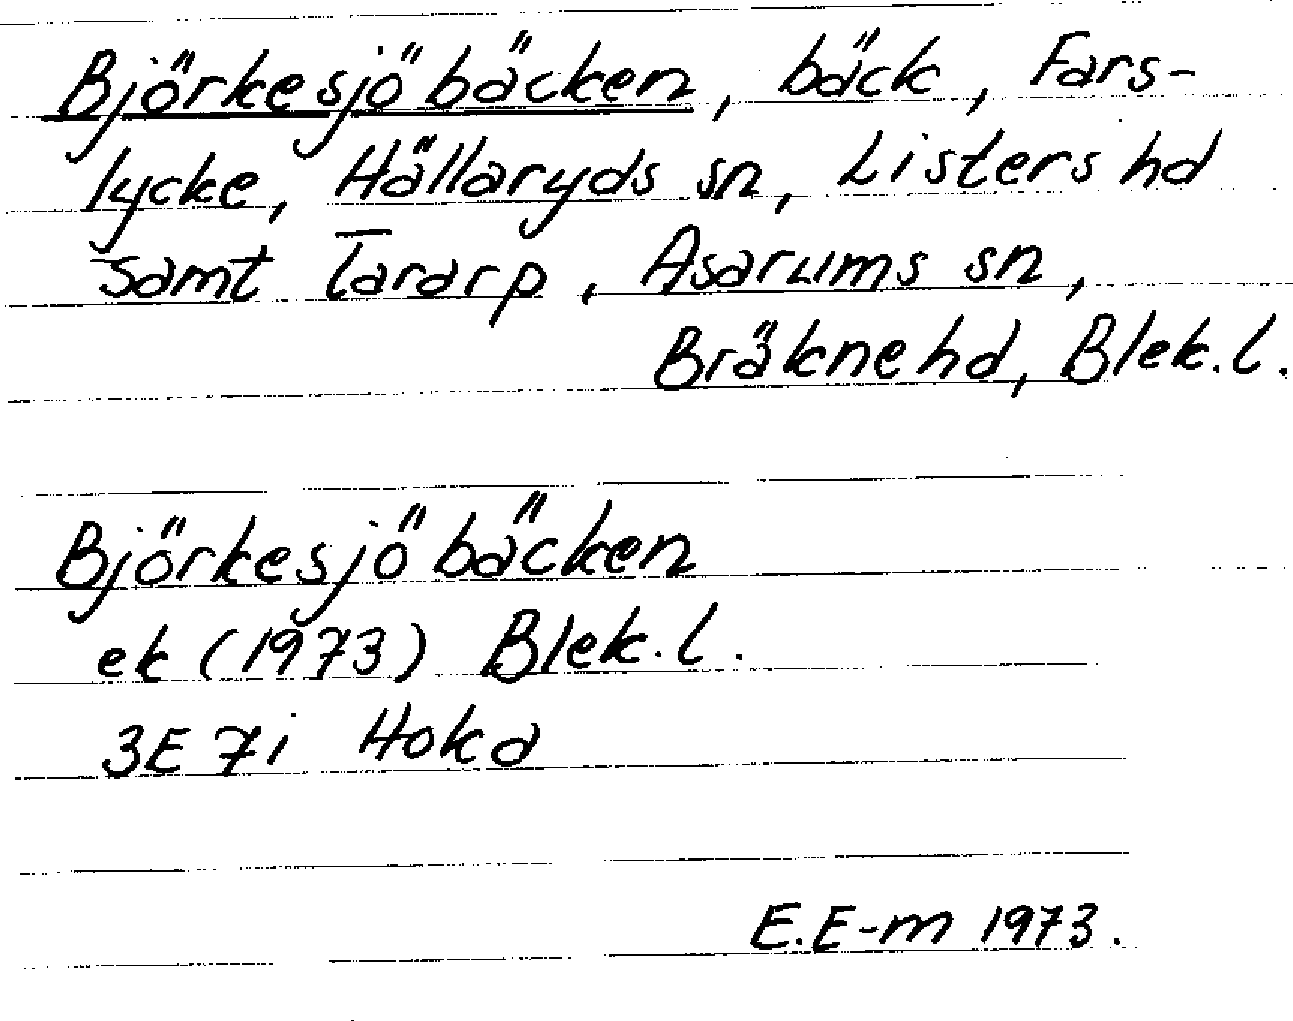 Björkesjöbäcken, bäck, Fars-
lycke, Hällaryds sn, Listers hd
samt Tararp, Asarums sn,
Bräkne hd, Blek.l.
Björkesjöbäcken
ek (1973) Blek.l.
3E 7i Hoka
E.E-m 1973.